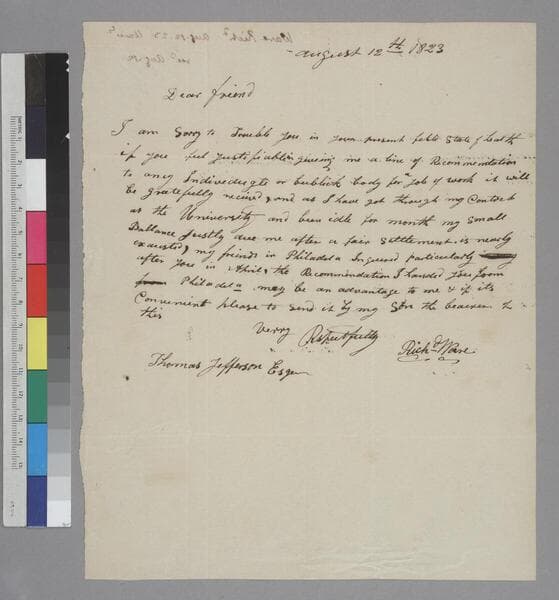 August 12th 1823
Dear friend
I am Sorry to Trouble you in your present feble State of healh
if you feel Justifiabl in giveing me a line of Recommendation
to any Individugls or bublick body for a Job of work it will
be gratefully recived, and as I have got though my Contrct
at the University and been idle for month my Small
Ballance Justly due me after a fair Settlement is nearly
exausted, my friends in Philadela Inquered particularly
after you in Phila the Recommendation I handed you from
Philadela may be an advantage to me & if its
Convenient please to send it by my Son the bearer of
this
Verry Respectfully
Richd Ware
Thomas Jefferson Esqr